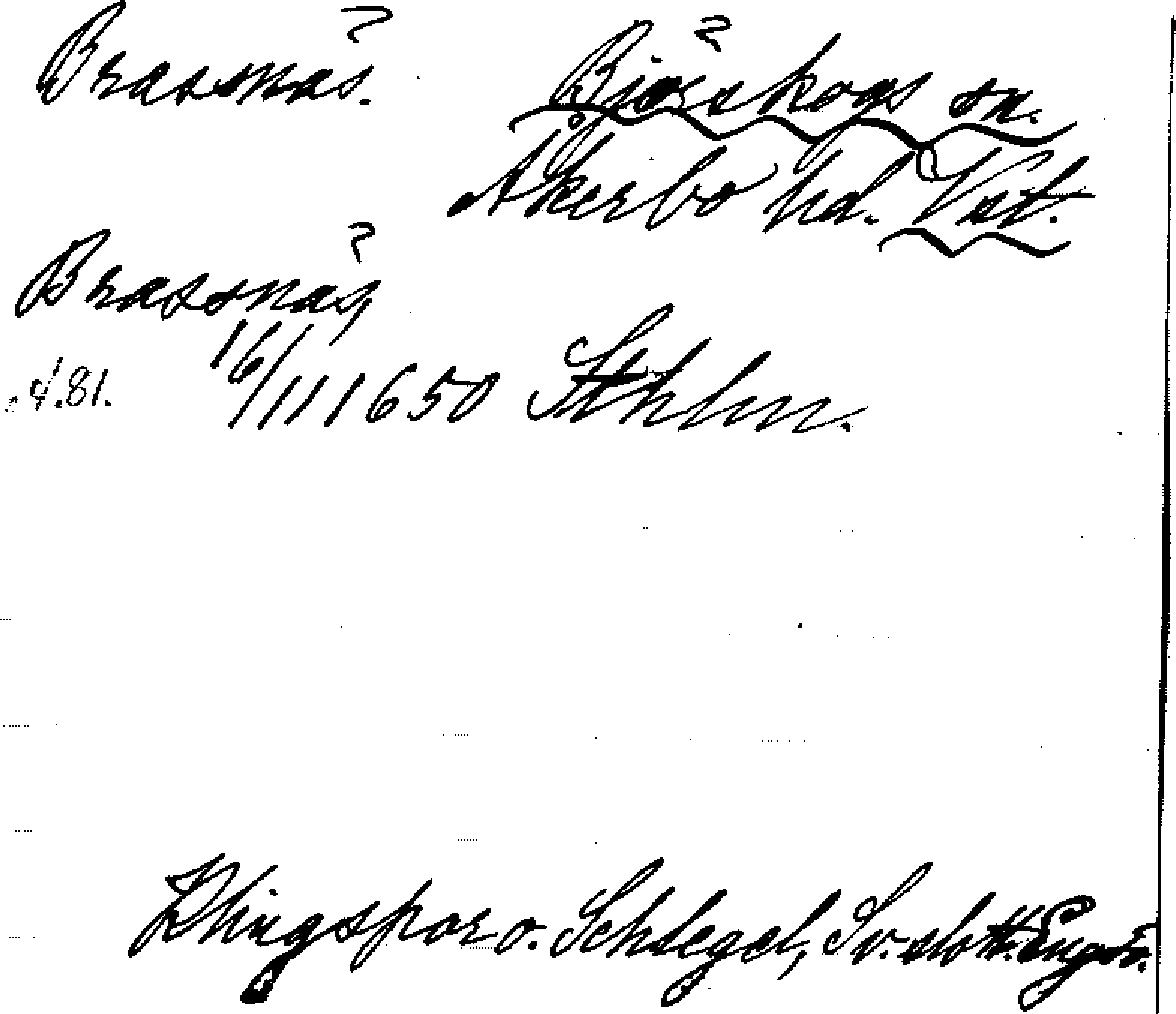 Brassnäs. Björskogs sn.
Åkerbo hd. Vstl.
Brassnäs,
s. 4.81. 16/11 1650 Sthlm.
Klingspor o. Schlegel, Sv. slott. Engsö.